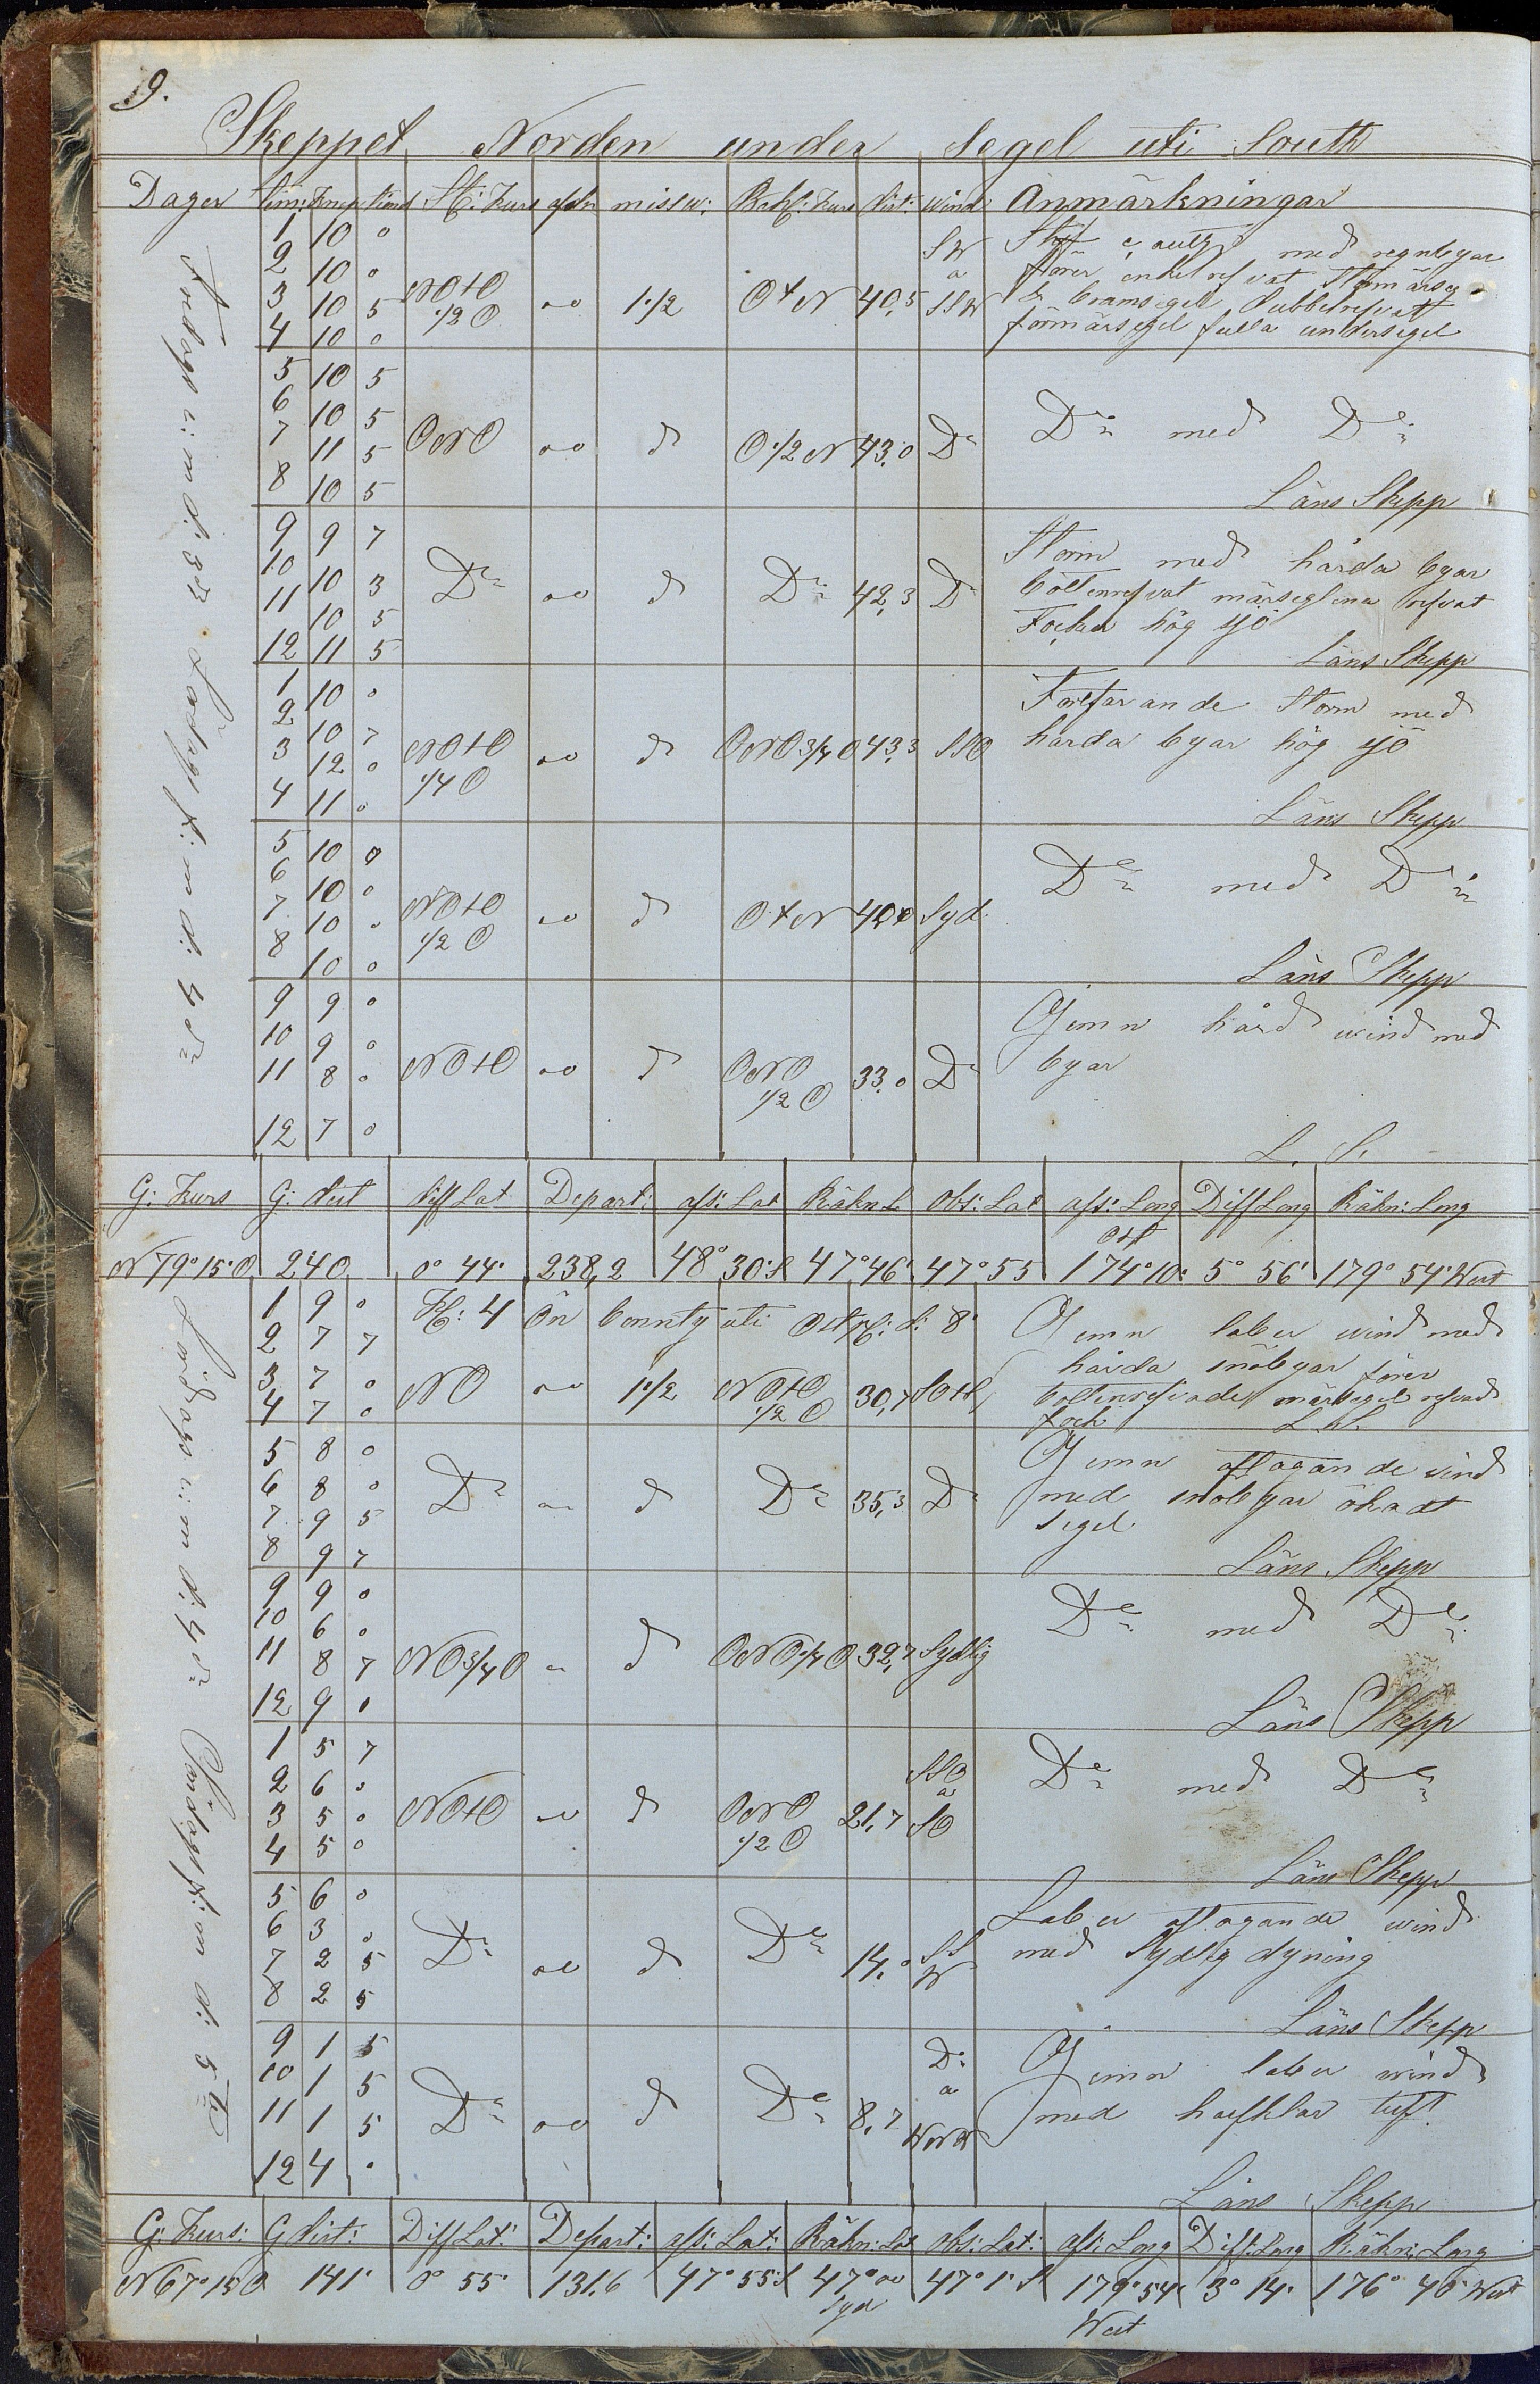 9.
Skeppet Norden under Segel uti South
Dager Tim: Knop St: Kurs afdr missw: Behl: Kurs Dist: Wind Anmärkningar
Fredag e: m d: 3de Lördag f: m d: 4de
1 10 0
2 10 0
3 10 5
4 10 0
NOtO 1/2 O oo 1 1/2 OtN 40,5 SW a SSW
med regnbyar
förer enkelrefvat Stormärseg
& bramsegel dubbelrefvat
förmärsegel fulla undersegel
5 10 5
6 10 5
7 11 5
8 10 5
ONO oo d O 1/2 N 43,0 Do
Do med Do
Läns Skepp
9 9 7
10 10 3
11 10 5
12 11 5
Do oo d Do 42,3 D
Storm med hårda byar
bottenrefvat märseglena refvat
Focken hög sjö
Läns Skepp
1 10 0
2 10 7
3 12 0
4 11 0
NOtO 1/4 O oo d ONO 3/4 O 43,3 SSO
Fortfarande Storm med
hårda byar hög sjö
Läns Skepp
5 10 0
6 10 0
7 10 0
8 10 0
NOtO 1/2 O oo d OtN 40,0 Syd
Do med Do
Läns Skepp
9 9 0
10 9 0
11 8 0
12 7 0
NOtO oo d ONO 1/2 O 33,0 Do
Jemn hård wind med
byar
L. S.
G: Kurs G: Dist Diff Lat Depart: aff: Lat Räkn L Obs: Lat aff: Long Diff Long Räkn: Long
N 79° 15' O 240 0° 44' 238,2 48° 30' S 47° 46' 47° 55 Ost 174° 10' 5° 56' 179° 54' West
Lördag e: m d: 4de Söndag f: m d: 5te
Kl: 4 Ön Bounty uti Ost
1 9 0
2 7 7
3 7 0
4 7 0
NO oo 1 1/2 NOtO 1/2 O 30,7 SOtS
Jemn laber wind med
hårda snöbyar förer
bottenrefvade märsegel refvad
fock L. S.
5 8 0
6 8 0
7 9 5
8 9 7
Do oo d Do 35,3 Do
Jemn aftagande vind
med snöbyar ökadt
segel
Läns Skepp
9 9 0
10 6 0
11 8 7
12 9 0
NO 3/4 O oo d ONO 1/4 O 32,7 Sydlig
Do med Do
Läns Skepp
1 5 7
2 6 0
3 5 0
4 5 0
NOtO oo d ONO 1/2 O 21,7 SSO a SO
Do med Do
Läns Skepp
5 6 0
6 3 0
7 2 5
8 2 5
Do oo d Do 14,0 SSW
Laber aftagande wind
med Sydlig dyning
Läns Skepp
9 1 5
10 1 5
11 1 5
12 4 0
Do oo d Do 8,7 Do a WNW
Jemn laber wind
med half klar luft
Läns Skepp
G: Kurs: G dist: Diff Lat: Depart: aff: Lat: Räkn: Lat obs: Lat: aff: Long Diff: Long Räkn: Long
N 67° 15' O 141' 0° 55' 131.6 47° 55' S 47° 00 Syd 47° 1' S 179° 54' West 3° 14' 176° 40' West